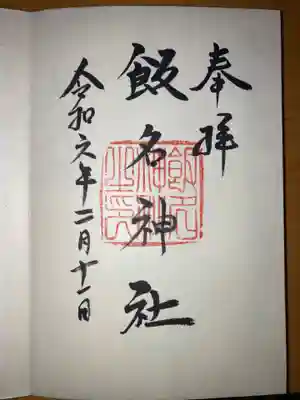 奉拝
飯名神社
令和六年二月十一日